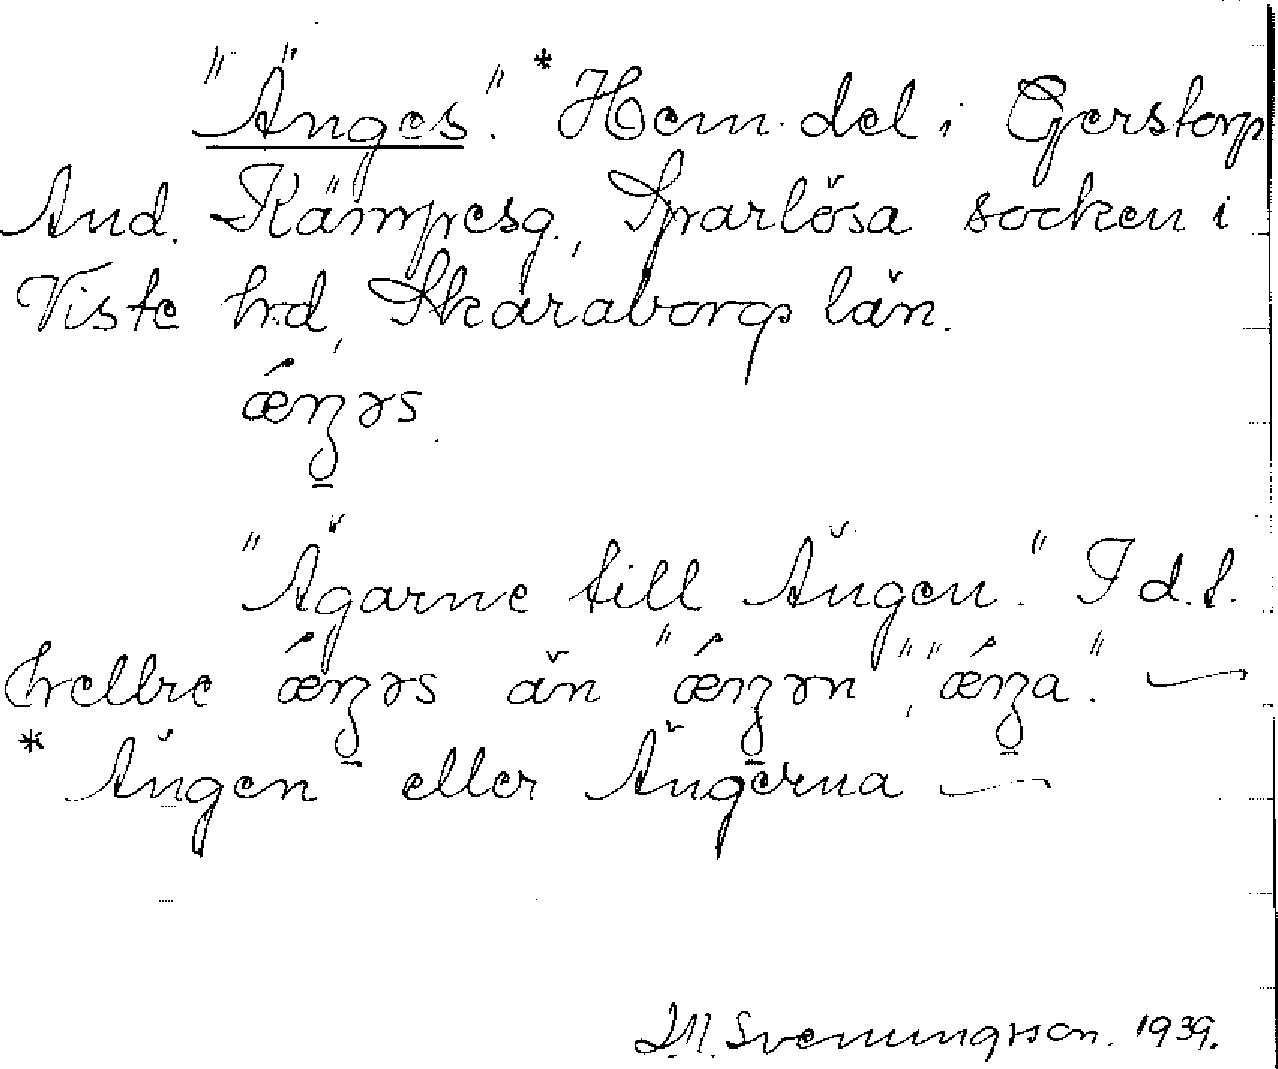 "Änges".* Hem. del i Gerstorp
And. Kämpesg., Sparlösa socken i
Viste hd, Skaraborgs län.
ǽŋəs.
"Ägarne till Ängen". I d.f.
hellre ǽŋəs än "ǽŋən", "ǽŋa". —
* Ängen eller Ängerna —
Svenungsson. 1939.